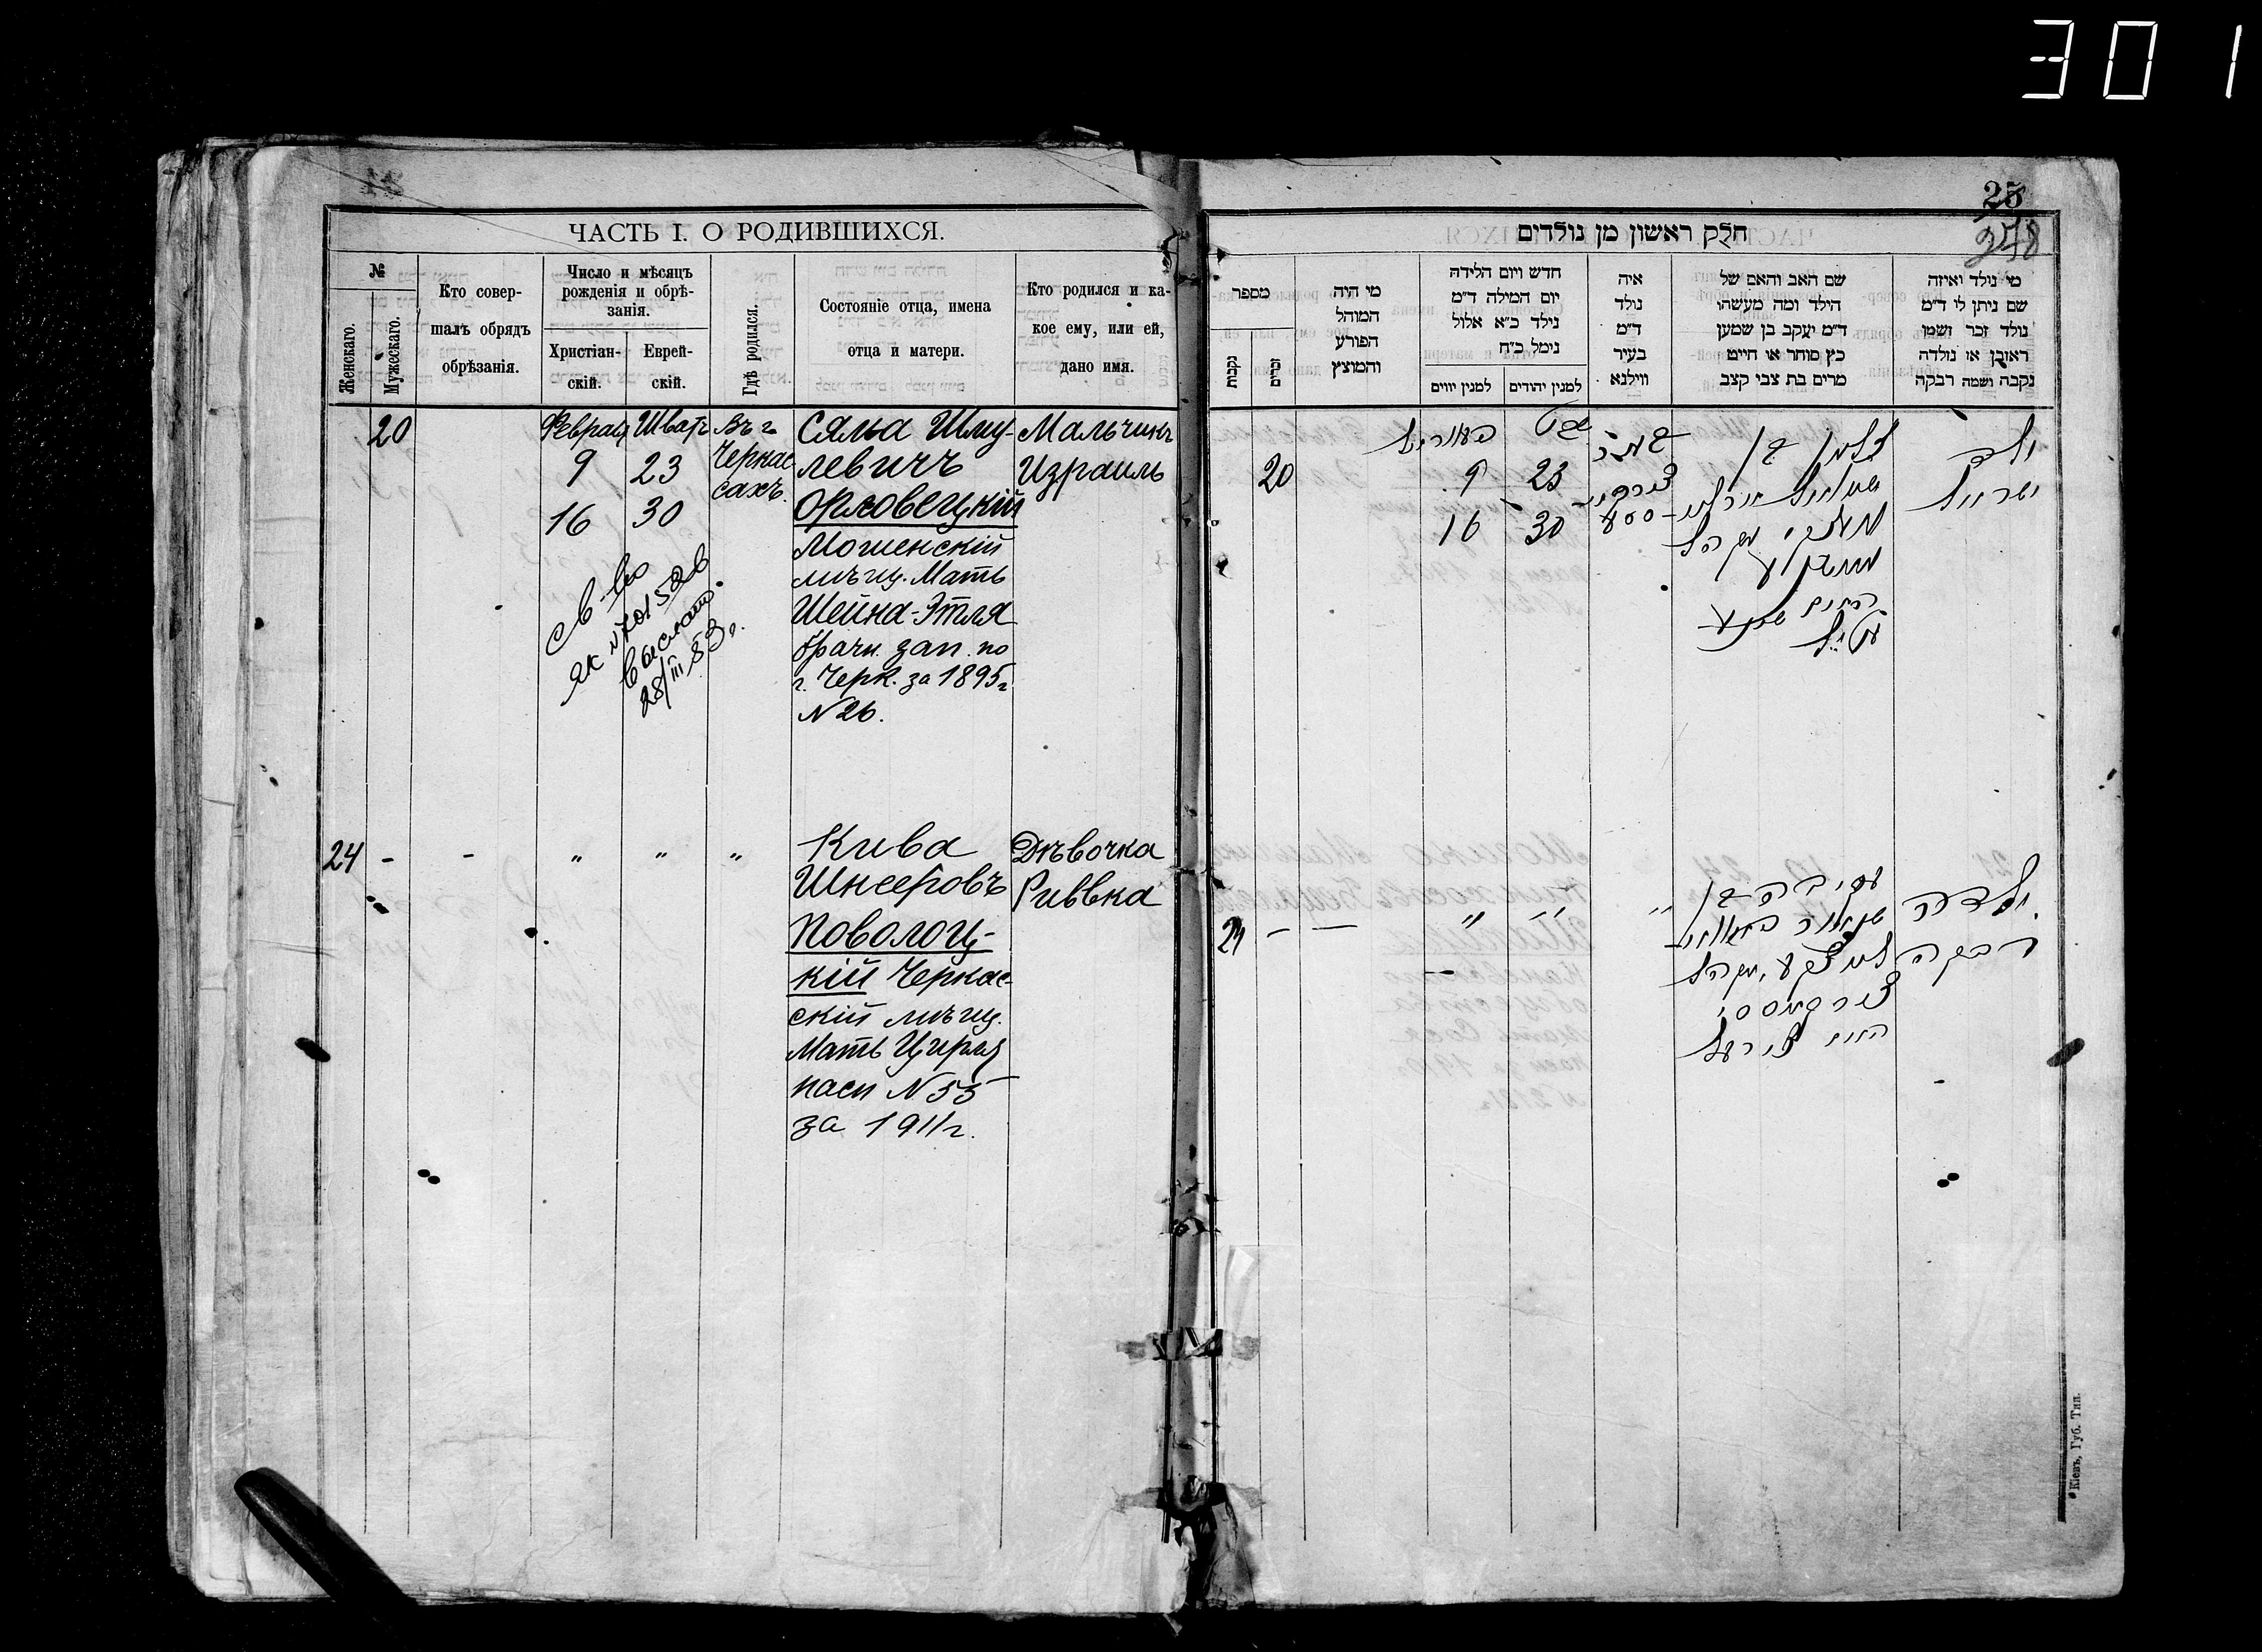 301
25
278
ЧАСТЬ I. О РОДИВШИХСЯ.
№
Женскаго.
Мужескаго.
Кто совер-
шалъ обрядъ
обрѣзанія.
Число и мѣсяцъ
рожденія и обрѣ-
занія.
Христіан-
скій.
Еврей-
скій.
Гдѣ родился.
Состояніе отца, имена
отца и матери.
Кто родился и ка-
кое ему, или ей,
дано имя.
20
Февраля
9
16
Шватъ
23
30
Въ г.
Черкас
сахъ.
Сяма Шму-
левичъ
Орловецкій
Мошенскій
мѣщ. Мать
Шейна-Этля
брачн. зап. по
г. Черк. за 1895г
N 26.
Мальчикъ
Израиль
св-во
ЯК №701582
выслано
28/III 53 г.
24 - - " " "
Кива
Шнееровъ
Поволоц-
кій Черкас-
скій мѣщ.
Мать Цирля
пасп N 55
за 1911г.
Дѣвочка
Риввка
חלק ראשון מן נולדים
מספר
נקבות
זכרים
מי היה
המוהל
הפורע
והמוצץ
חדש ויום הלידה
יום המילה ד״מ
נילד כ״א אלול
נימל כ״ח
למנין יווים
למנין יהודים
איה
נולד
ד״מ
בעיר
ווילנא
שם האב והאם של
הילד ומה מעשהו
ד״מ יעקב בן שמען
כץ סוחר או חייט
מרים בת צבי קצב
מי נולד ואיזה
שם ניתן לו ד״מ
נולד זכר ושמו
ראובן או נולדה
נקבה ושמה רבקה
20
פעוריאל
9
16
שבט
23
30
זלמן בן
שמואל
ילד
ישראל
24 - - " " "
עקיבה בן
שניאור
צירל
ילדה
רבקה
Кіевъ, Губ. Тип.